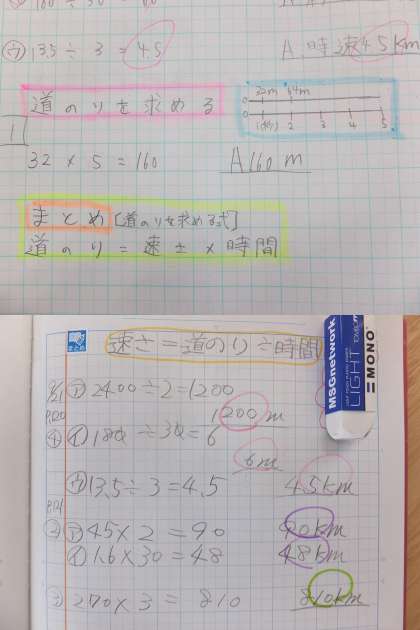 ウ 13.5 ÷ 3 = 4.5 A 時速4.5km
道のりを求める
32m 64m
0
0 1(秒) 2 3 4 5
1
32 × 5 = 160 A 160 m
まとめ [道のりを求める式]
道のり = 速さ × 時間
速さ = 道のり ÷ 時間
ア 2400 ÷ 2 = 1200
1200 m
イ 180 ÷ 30 = 6
6m
ウ 13.5 ÷ 3 = 4.5 4.5km
ア 45 × 2 = 90 90km
イ 1.6 × 30 = 48 48km
270 × 3 = 810 810km
MSGnetwork
LIGHT
MONO